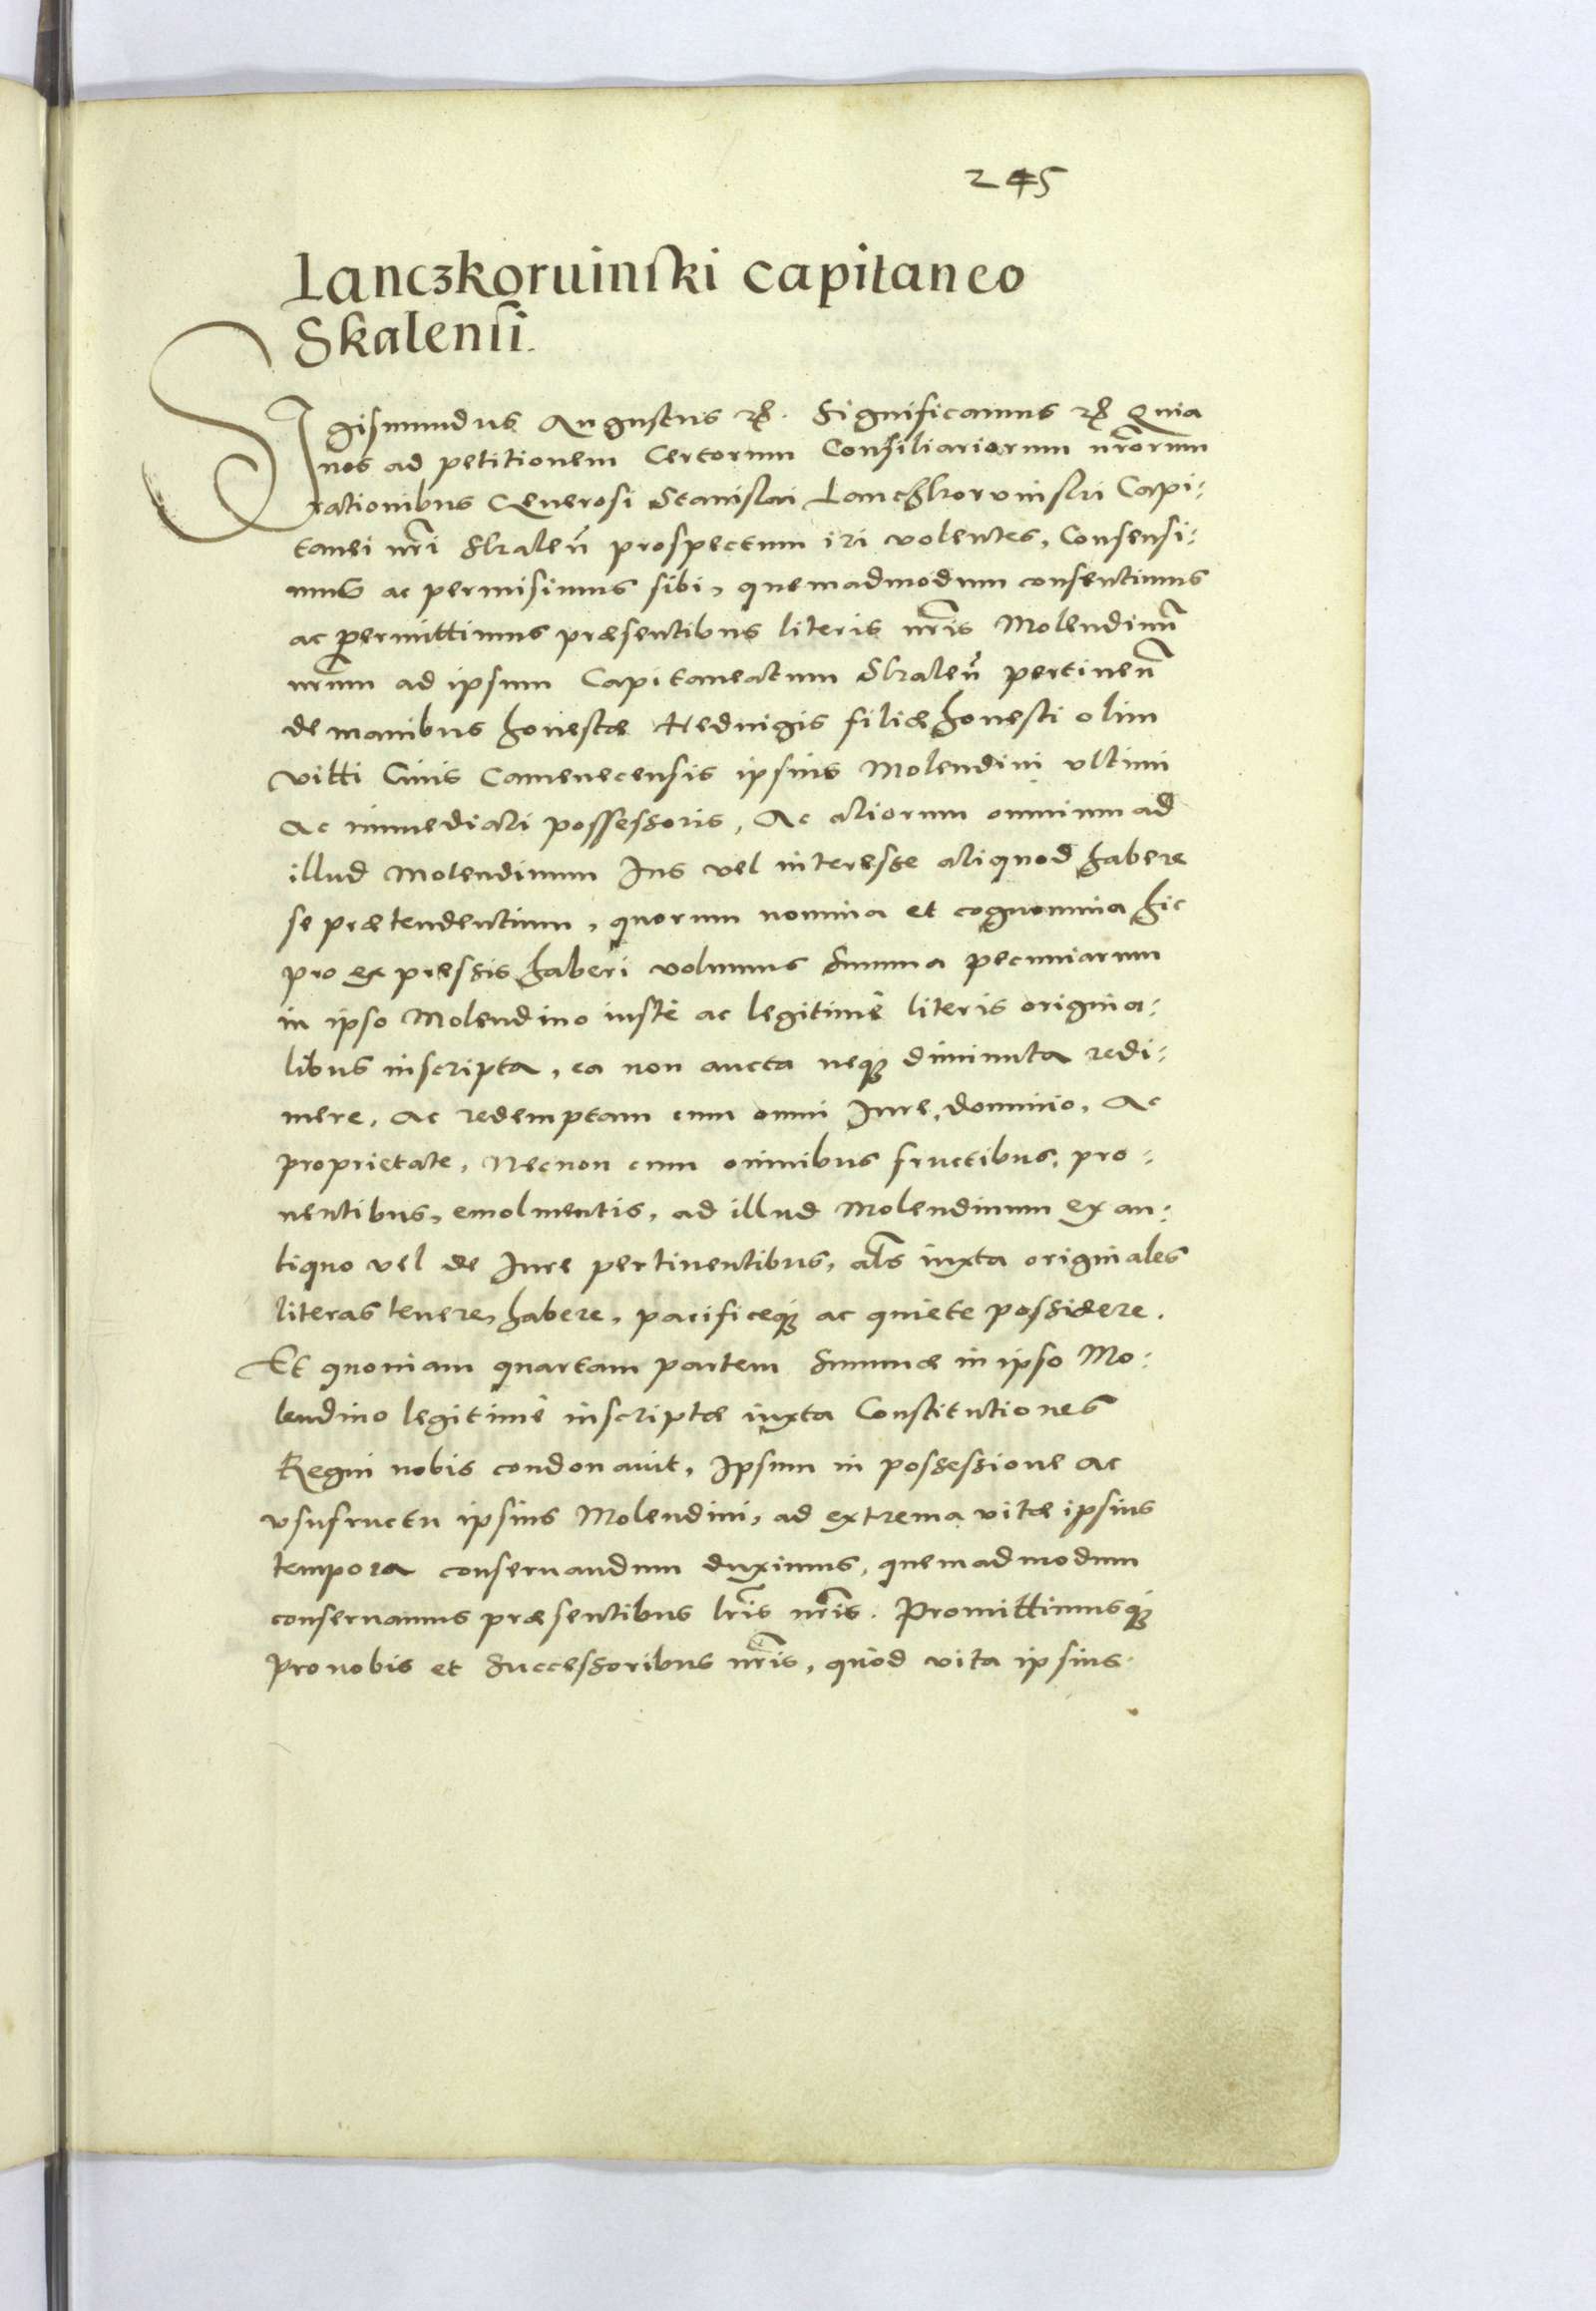 245
Lanczkoruinski capitaneo
Skalensi.
Sigismundus Augustus &c. Significamus &c Quia
nos ad petitionem Certorum Consiliariorum nr̃orum
rationibus Generosi Stanislai Lanczkoruinski Capi:
tanei nr̃i Skaleñ prospectum iri volentes, Consensi:
mus ac permisimus sibi, quemadmodum consentimus
ac permittimus præsentibus literis nr̃is Molendinũ
nr̃um ad ipsum Capitaneatum Skaleñ pertineñ
de manibus honestæ Heduigis filiæ honesti olim
Vitti Ciuis Camenecensis ipsius Molendini vltimi
Ac immediati possessoris, Ac aliorum omnium ad
illud Molendinum Ius vel interesse aliquod habere
se prætendentium, quorum nomina et cognomina hic
pro expressis haberi volumus Summa pecuniarum
in ipso Molendino iustè ac legitimè literis origina:
libus inscripta, ea non aucta neq₃ diminuta redi:
mere, Ac redemptam cum omni Iure, dominio, Ac
proprietate, Necnon cum omnibus fructibus, pro:
uentibus, emolumentis, ad illud Molendinum ex an:
tiquo vel de Iure pertinentibus, al̃s iuxta originales
literas tenere, habere, pacificeq₃ ac quiete possidere.
Et quoniam quartam partem Summæ in ipso Mo:
lendino legitimè inscriptæ iuxta Constitutiones
Regni nobis condonauit, Ipsum in possessione Ac
vsufructu ipsius Molendini, ad extrema vitæ ipsius
tempora conseruandum duximus, quemadmodum
conseruamus præsentibus lr̃is nr̃is. Promittimusq₃
Pro nobis et Successoribus nr̃is, quòd vita ipsius